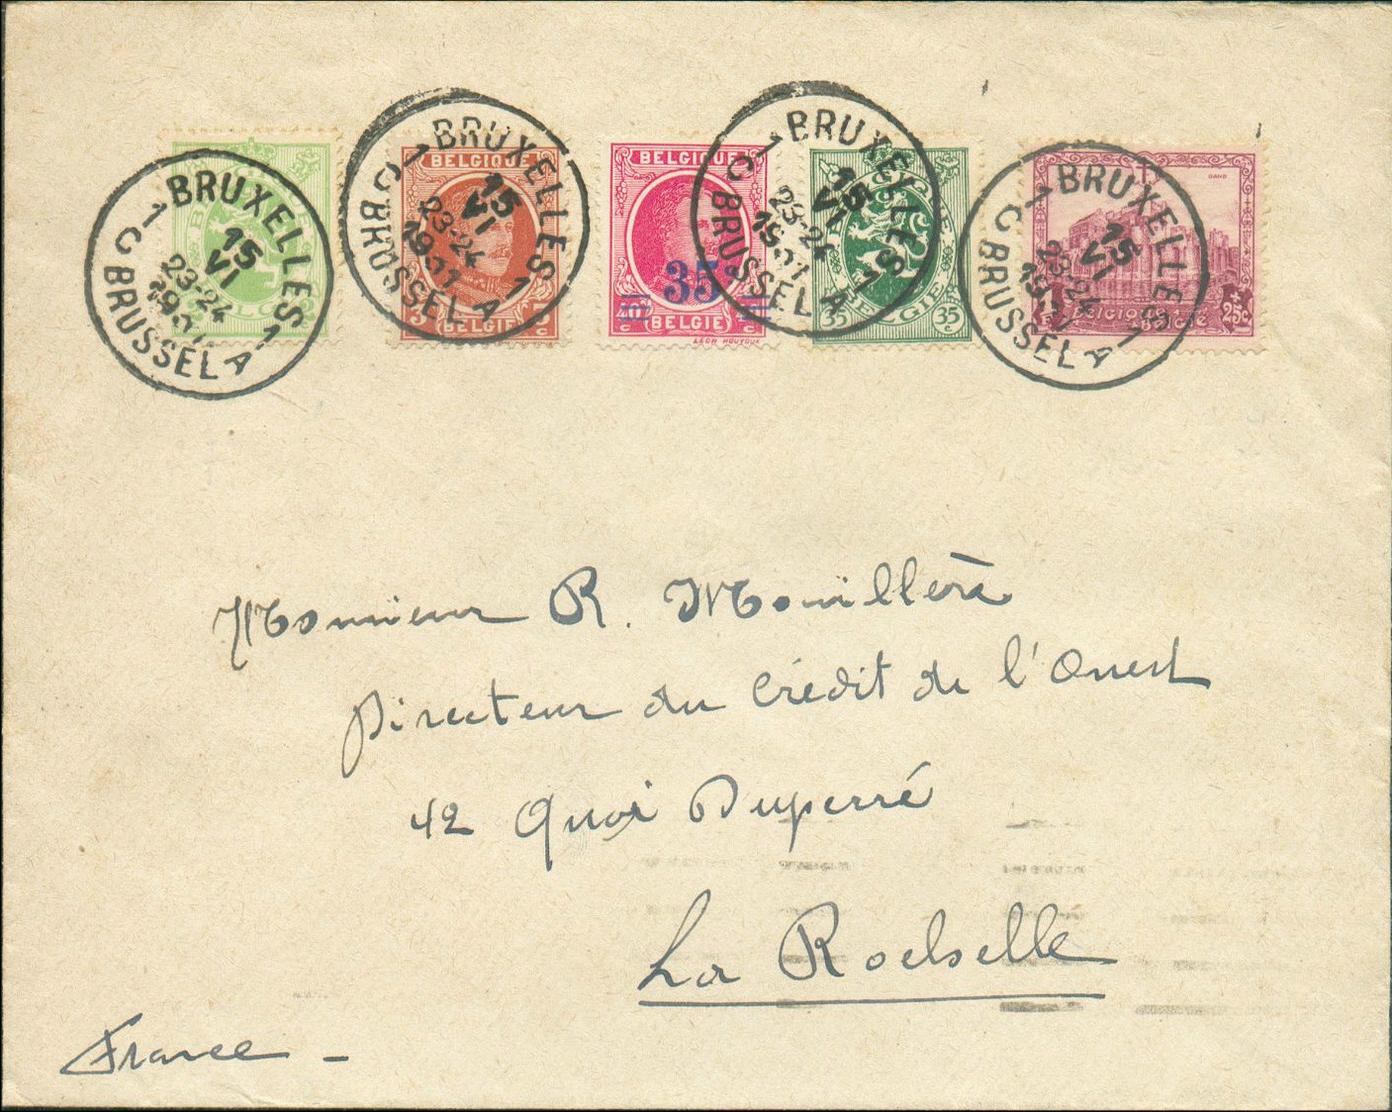 BRUXELLES 1
1 C BRUSSEL A
15
VI
23-24
BRUXELLES 1
1 C BRUSSEL A
15
VI
23-24
BELGIQUE
BELGIE
BELGIQUE
35
BELGIE
LEON HOUYOUX
BRUXELLES 1
1 C BRUSSEL A
15
VI
23-24
35 c BELGIE 35 c
BRUXELLES 1
1 C BRUSSEL A
15
VI
23-24
GAND
BELGIQUE
+ 25c
Monsieur R. Mouillère
Directeur du Crédit de l'Ouest
42 Quai Duperré
La Rochelle
France -